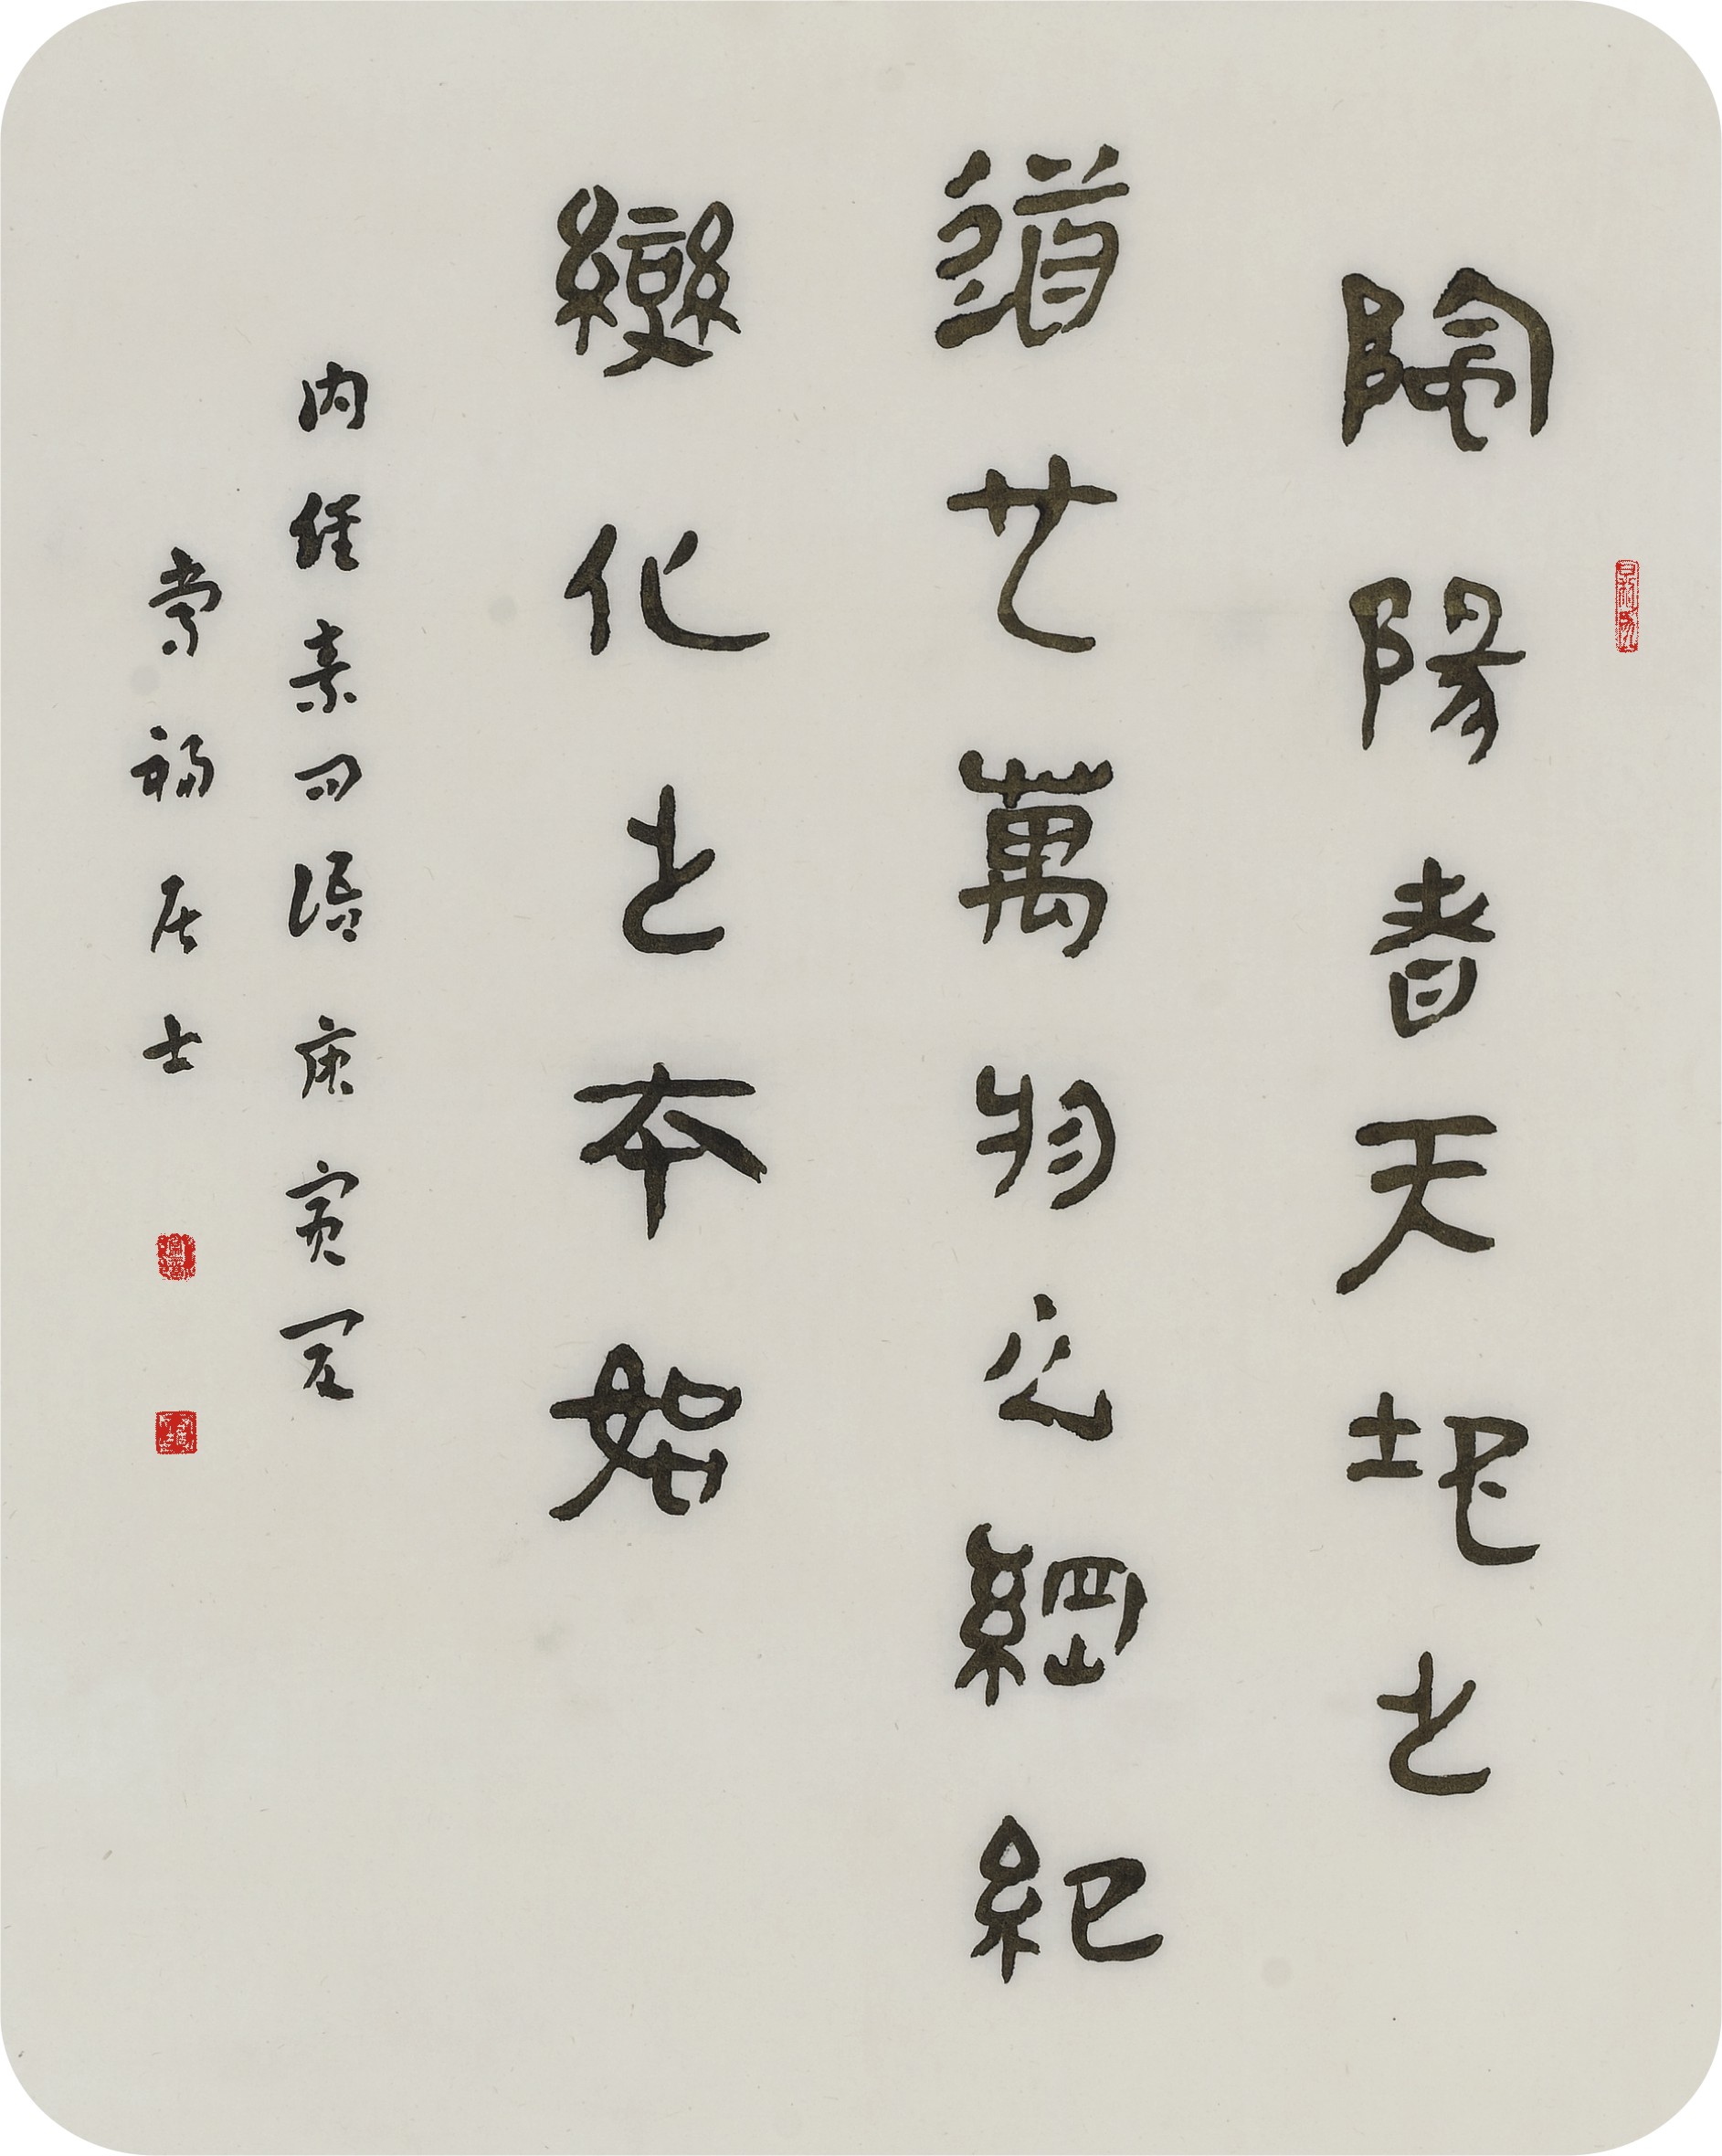 陰陽者天地之
道也萬物之綱紀
變化之本始
内經素問語庚寅夏
崇福居士